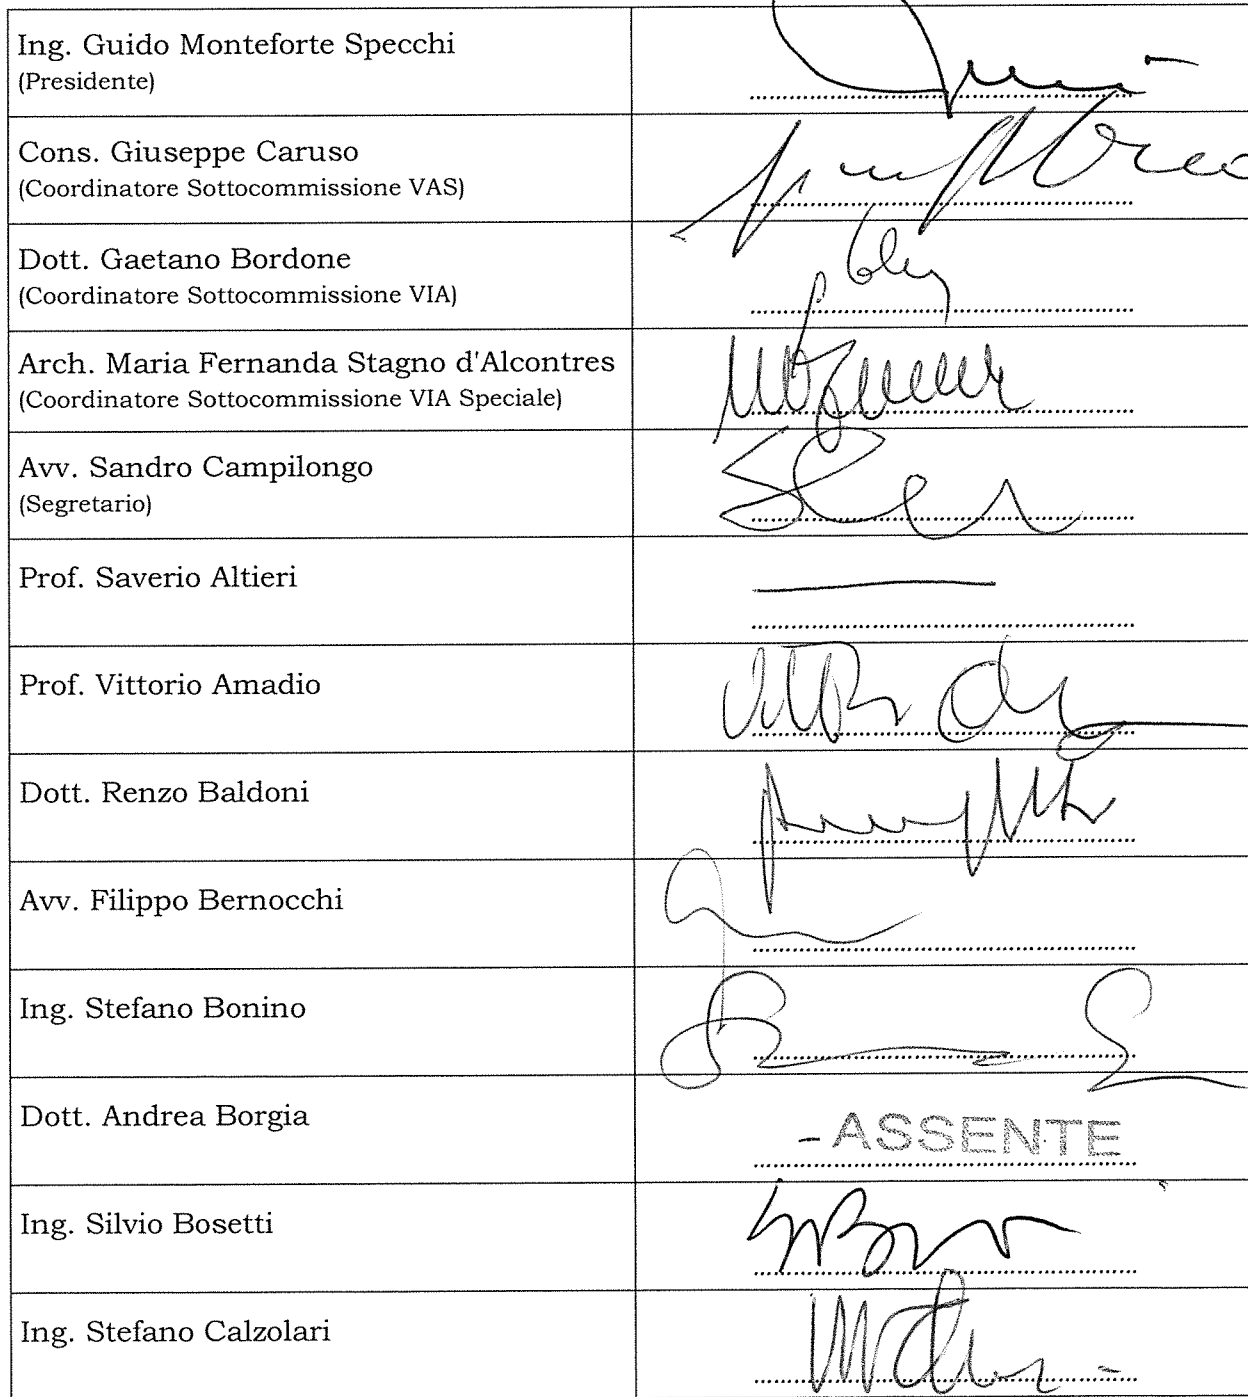 Ing. Guido Monteforte Specchi
(Presidente)
Cons. Giuseppe Caruso
(Coordinatore Sottocommissione VAS)
Dott. Gaetano Bordone
(Coordinatore Sottocommissione VIA)
Arch. Maria Fernanda Stagno d'Alcontres
(Coordinatore Sottocommissione VIA Speciale)
Avv. Sandro Campilongo
(Segretario)
Prof. Saverio Altieri
Prof. Vittorio Amadio
Dott. Renzo Baldoni
Avv. Filippo Bernocchi
Ing. Stefano Bonino
Dott. Andrea Borgia
- ASSENTE
Ing. Silvio Bosetti
Ing. Stefano Calzolari